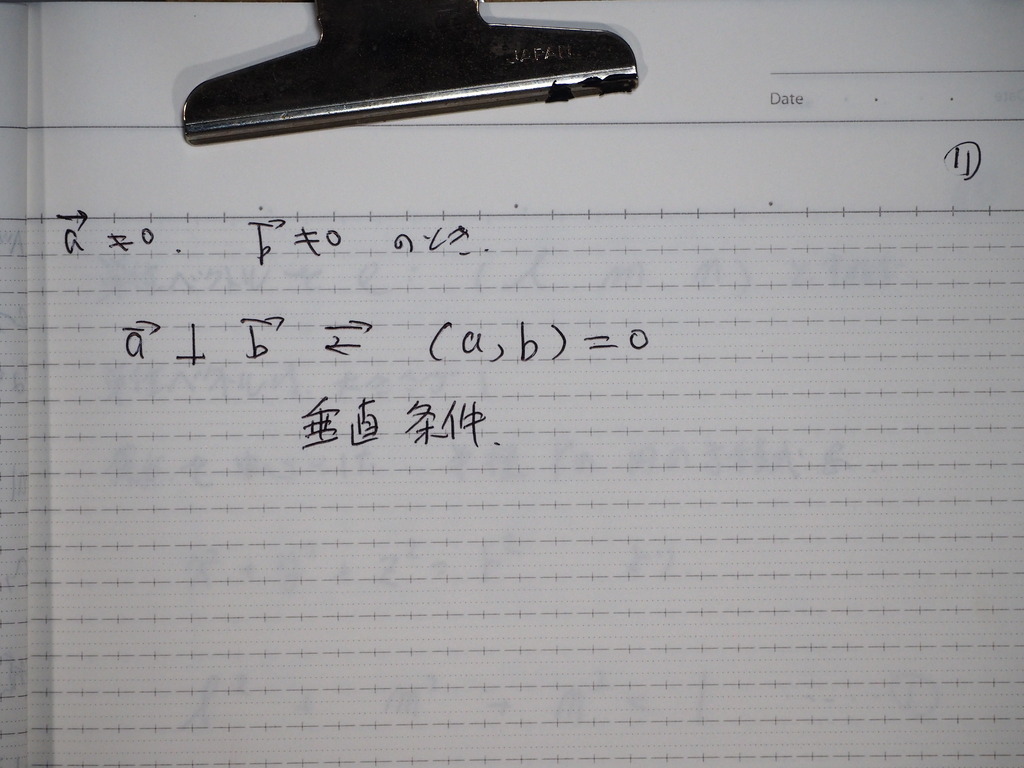 JAPAN
Date
⑪
a⃗ ≠0. b⃗ ≠0 のとき.
a⃗ ⊥ b⃗ ⇄ (a, b) = 0
垂直条件.